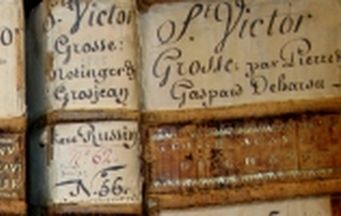 St Victor
Grosse:
Grosjean
Russin
N. 62
N. 56.
St Victor
Grosse: par Pierre
Gaspard Debarsa